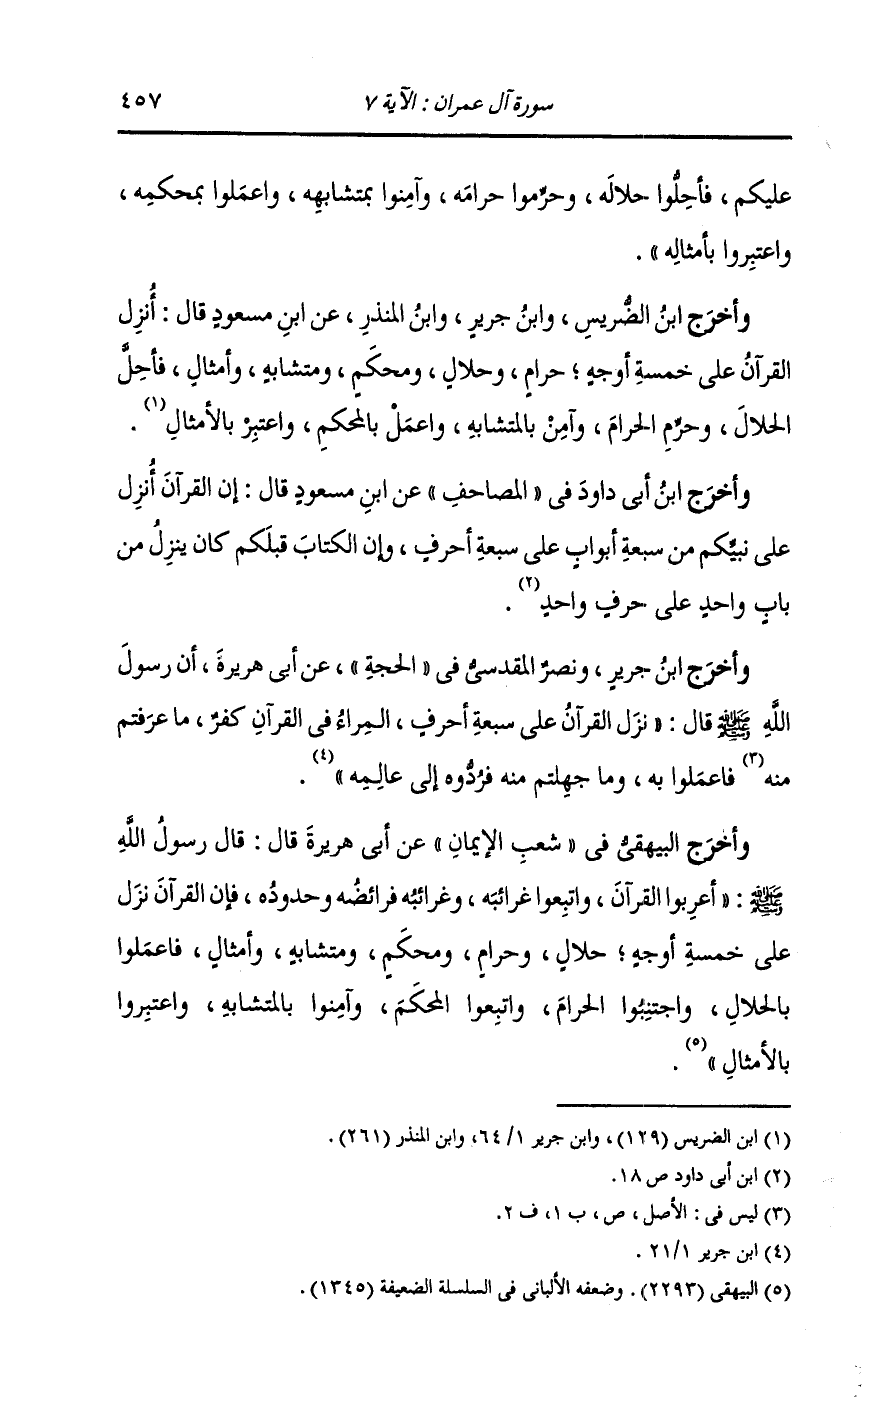 سورة آل عمران : الآية ٧ ٤٥٧
عليكم ، فأحِلُّوا حلالَه ، وحرِّموا حرامَه ، وآمِنوا بمتشابهِه ، واعمَلوا بمحكمِه ،
واعتبِروا بأمثالِه » .
وأخرَج ابنُ الضُّريسِ ، وابنُ جريرٍ ، وابنُ المنذرِ ، عن ابنِ مسعودٍ قال : أُنزِل
القرآنُ على خمسةِ أوجهٍ ؛ حرامٍ ، وحلالٍ ، ومحكَمٍ ، ومتشابهٍ ، وأمثالٍ ، فأحِلَّ
الحلالَ ، وحرِّمِ الحرامَ ، وآمِنْ بالمتشابهِ ، واعمَلْ بالمحكمِ ، واعتبِرْ بالأمثالِ(١) .
وأخرَج ابنُ أبى داودَ فى « المصاحفِ » عن ابنِ مسعودٍ قال : إن القرآنَ أُنزِل
على نبيِّكم من سبعةِ أبوابٍ على سبعةِ أحرفٍ ، وإن الكتابَ قبلَكم كان ينزِلُ من
بابٍ واحدٍ على حرفٍ واحدٍ(٢) .
وأخرَج ابنُ جريرٍ ، ونصرٌ المقدسىُّ فى « الحجةِ » ، عن أبى هريرةَ ، أن رسولَ
اللَّهِ ﷺ قال : « نزَل القرآنُ على سبعةِ أحرفٍ ، المِراءُ فى القرآنِ كفرٌ ، ما عرَفتم
منه(٣) فاعمَلوا به ، وما جهِلتم منه فرُدُّوه إلى عالِمِه »(٤) .
وأخرَج البيهقىُّ فى « شعبِ الإيمانِ » عن أبى هريرةَ قال : قال رسولُ اللَّهِ
ﷺ : « أعرِبوا القرآنَ ، واتبِعوا غرائبَه ، وغرائبُه فرائضُه وحدودُه ، فإن القرآنَ نزَل
على خمسةِ أوجهٍ ؛ حلالٍ ، وحرامٍ ، ومحكَمٍ ، ومتشابهٍ ، وأمثالٍ ، فاعمَلوا
بالحلالِ ، واجتنِبُوا الحرامَ ، واتبِعوا المحكَمَ ، وآمِنوا بالمتشابهِ ، واعتبِروا
بالأمثالِ »(٥) .
(١) ابن الضريس (١٢٩) ، وابن جرير ١/ ٦٤، وابن المنذر (٢٦١) .
(٢) ابن أبى داود ص ١٨.
(٣) ليس فى : الأصل ، ص ، ب ١، ف ٢.
(٤) ابن جرير ١/ ٢١ .
(٥) البيهقى (٢٢٩٣) . وضعفه الألبانى فى السلسلة الضعيفة (١٣٤٥) .